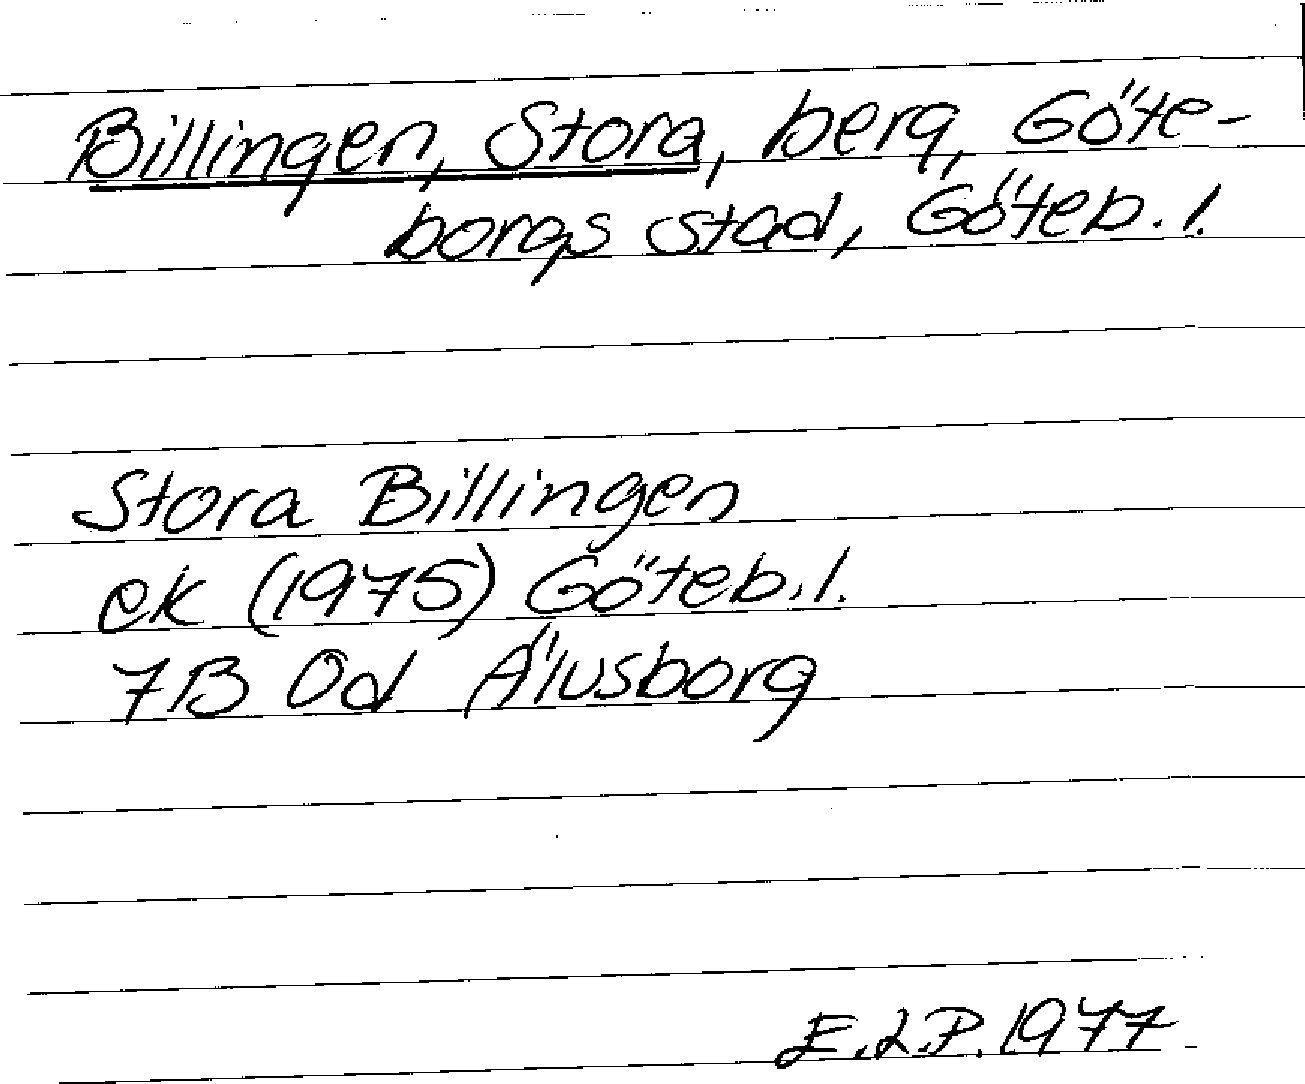 Billingen, Stora, berg, Göte-
borgs stad, Göteb. l.
Stora Billingen
ek (1975) Göteb. l.
7B Od Älvsborg
E.L.P. 1977